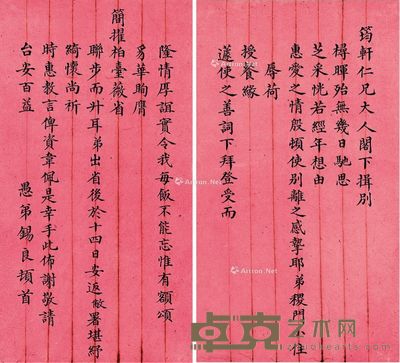 筠軒仁兄大人閣下揖別
襜暉殆無幾日馳思
芝采恍若經年想由
惠愛之情殷頓使別離之感摯耶弟稷門小住
辱荷
授餐緣
蘧使之善詞下拜登受而
隆情厚誼實令我每飯不能忘惟有額頌
旉華眴膺
簡擢柏臺薇省
聯步而升耳弟出省後於十四日安返敝署堪紓
綺懷尚祈
時惠教言俾資韋佩是幸手此佈謝敬請
台安百益
愚弟錫良頓首
卓克艺术网